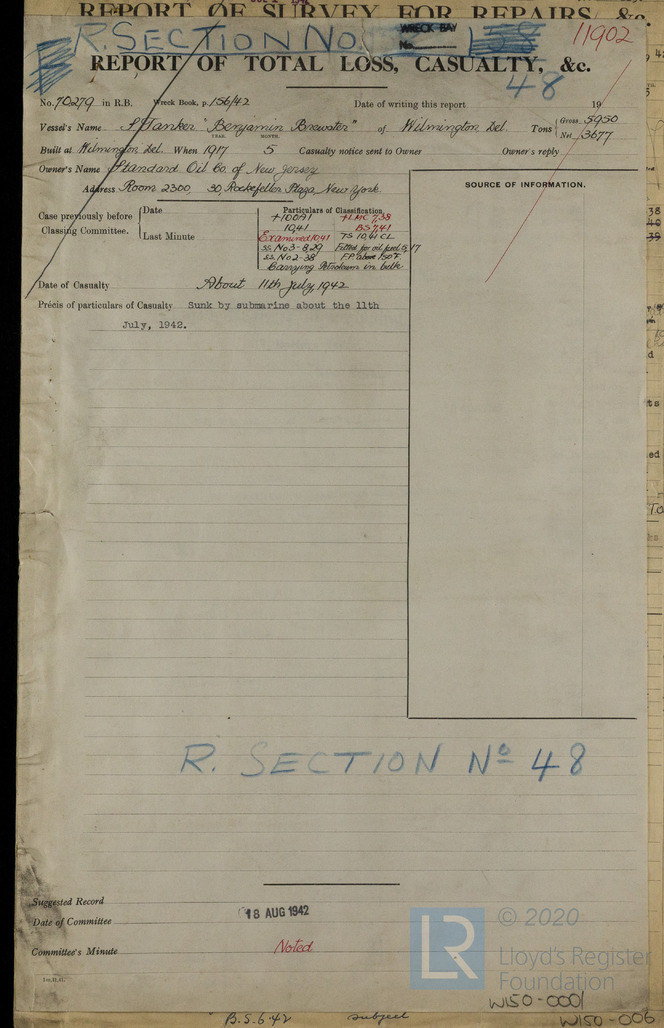 REPORT OF SURVEY FOR REPAIRS, &c.
R. SECTION NO.
WRECK BAY
No.
158
48
11902
REPORT OF TOTAL LOSS, CASUALTY, &c.
No. 70279 in R.B. Wreck Book, p. 156/42 Date of writing this report 19
Vessel's Name S/Tanker "Benjamin Brewster" of Wilmington Del. Tons Gross 5950 Net 3677
Built at Wilmington Del. When YEAR. 1917 MONTH. 5 Casualty notice sent to Owner Owner's reply
Owner's Name Standard Oil Co. of New Jersey
Address Room 2300, 30, Rockefeller Plaza New York.
SOURCE OF INFORMATION.
Case previously before Classing Committee. Date
Last Minute
Particulars of Classification
+100A1 +LMC 7,38
10,41 BS 7,41
Examined 10,41 TS 10,41 CL
ss. No3-8,29 Fitted for oil fuel 5,17
ss. No2-38 F.P. above 150°F
Carrying Petroleum in bulk
Date of Casualty About 11th July 1942
Précis of particulars of Casualty Sunk by submarine about the 11th
July, 1942.
R. SECTION No 48
Suggested Record
Date of Committee 18 AUG 1942
Committee's Minute Noted
LR
© 2020
Lloyd's Register
Foundation
W150-0001
B.S. 6.42 subject
W150-006